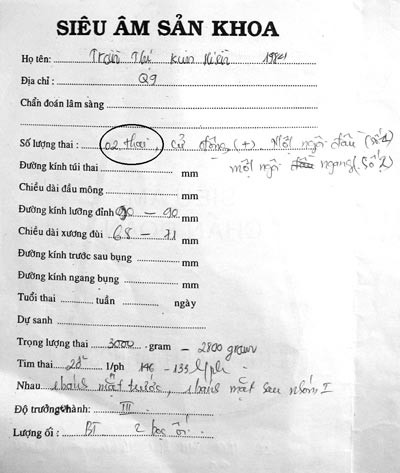 SIÊU ÂM SẢN KHOA
Họ tên: Trần Thị Kim Hiền 1984
Địa chỉ: Q9
Chẩn đoán lâm sàng
Số lượng thai: 02 thai, cử động (+) Một ngôi đầu (số 1)
Đường kính túi thai mm một ngôi ngang (số 2)
Chiều dài đầu mông mm
Đường kính lưỡng đỉnh 90 - 90 mm
Chiều dài xương đùi 68 - 71 mm
Đường kính trước sau bụng mm
Đường kính ngang bụng mm
Tuổi thai tuần ngày
Dự sanh
Trọng lượng thai 3000 gram - 2800 gram
Tim thai 2đ l/ph 146 - 133 l/ph
Nhau 1 bánh mặt trước, 1 bánh mặt sau nhóm I
Độ trưởng thành: III
Lượng ối: BT 2 bọc ối.